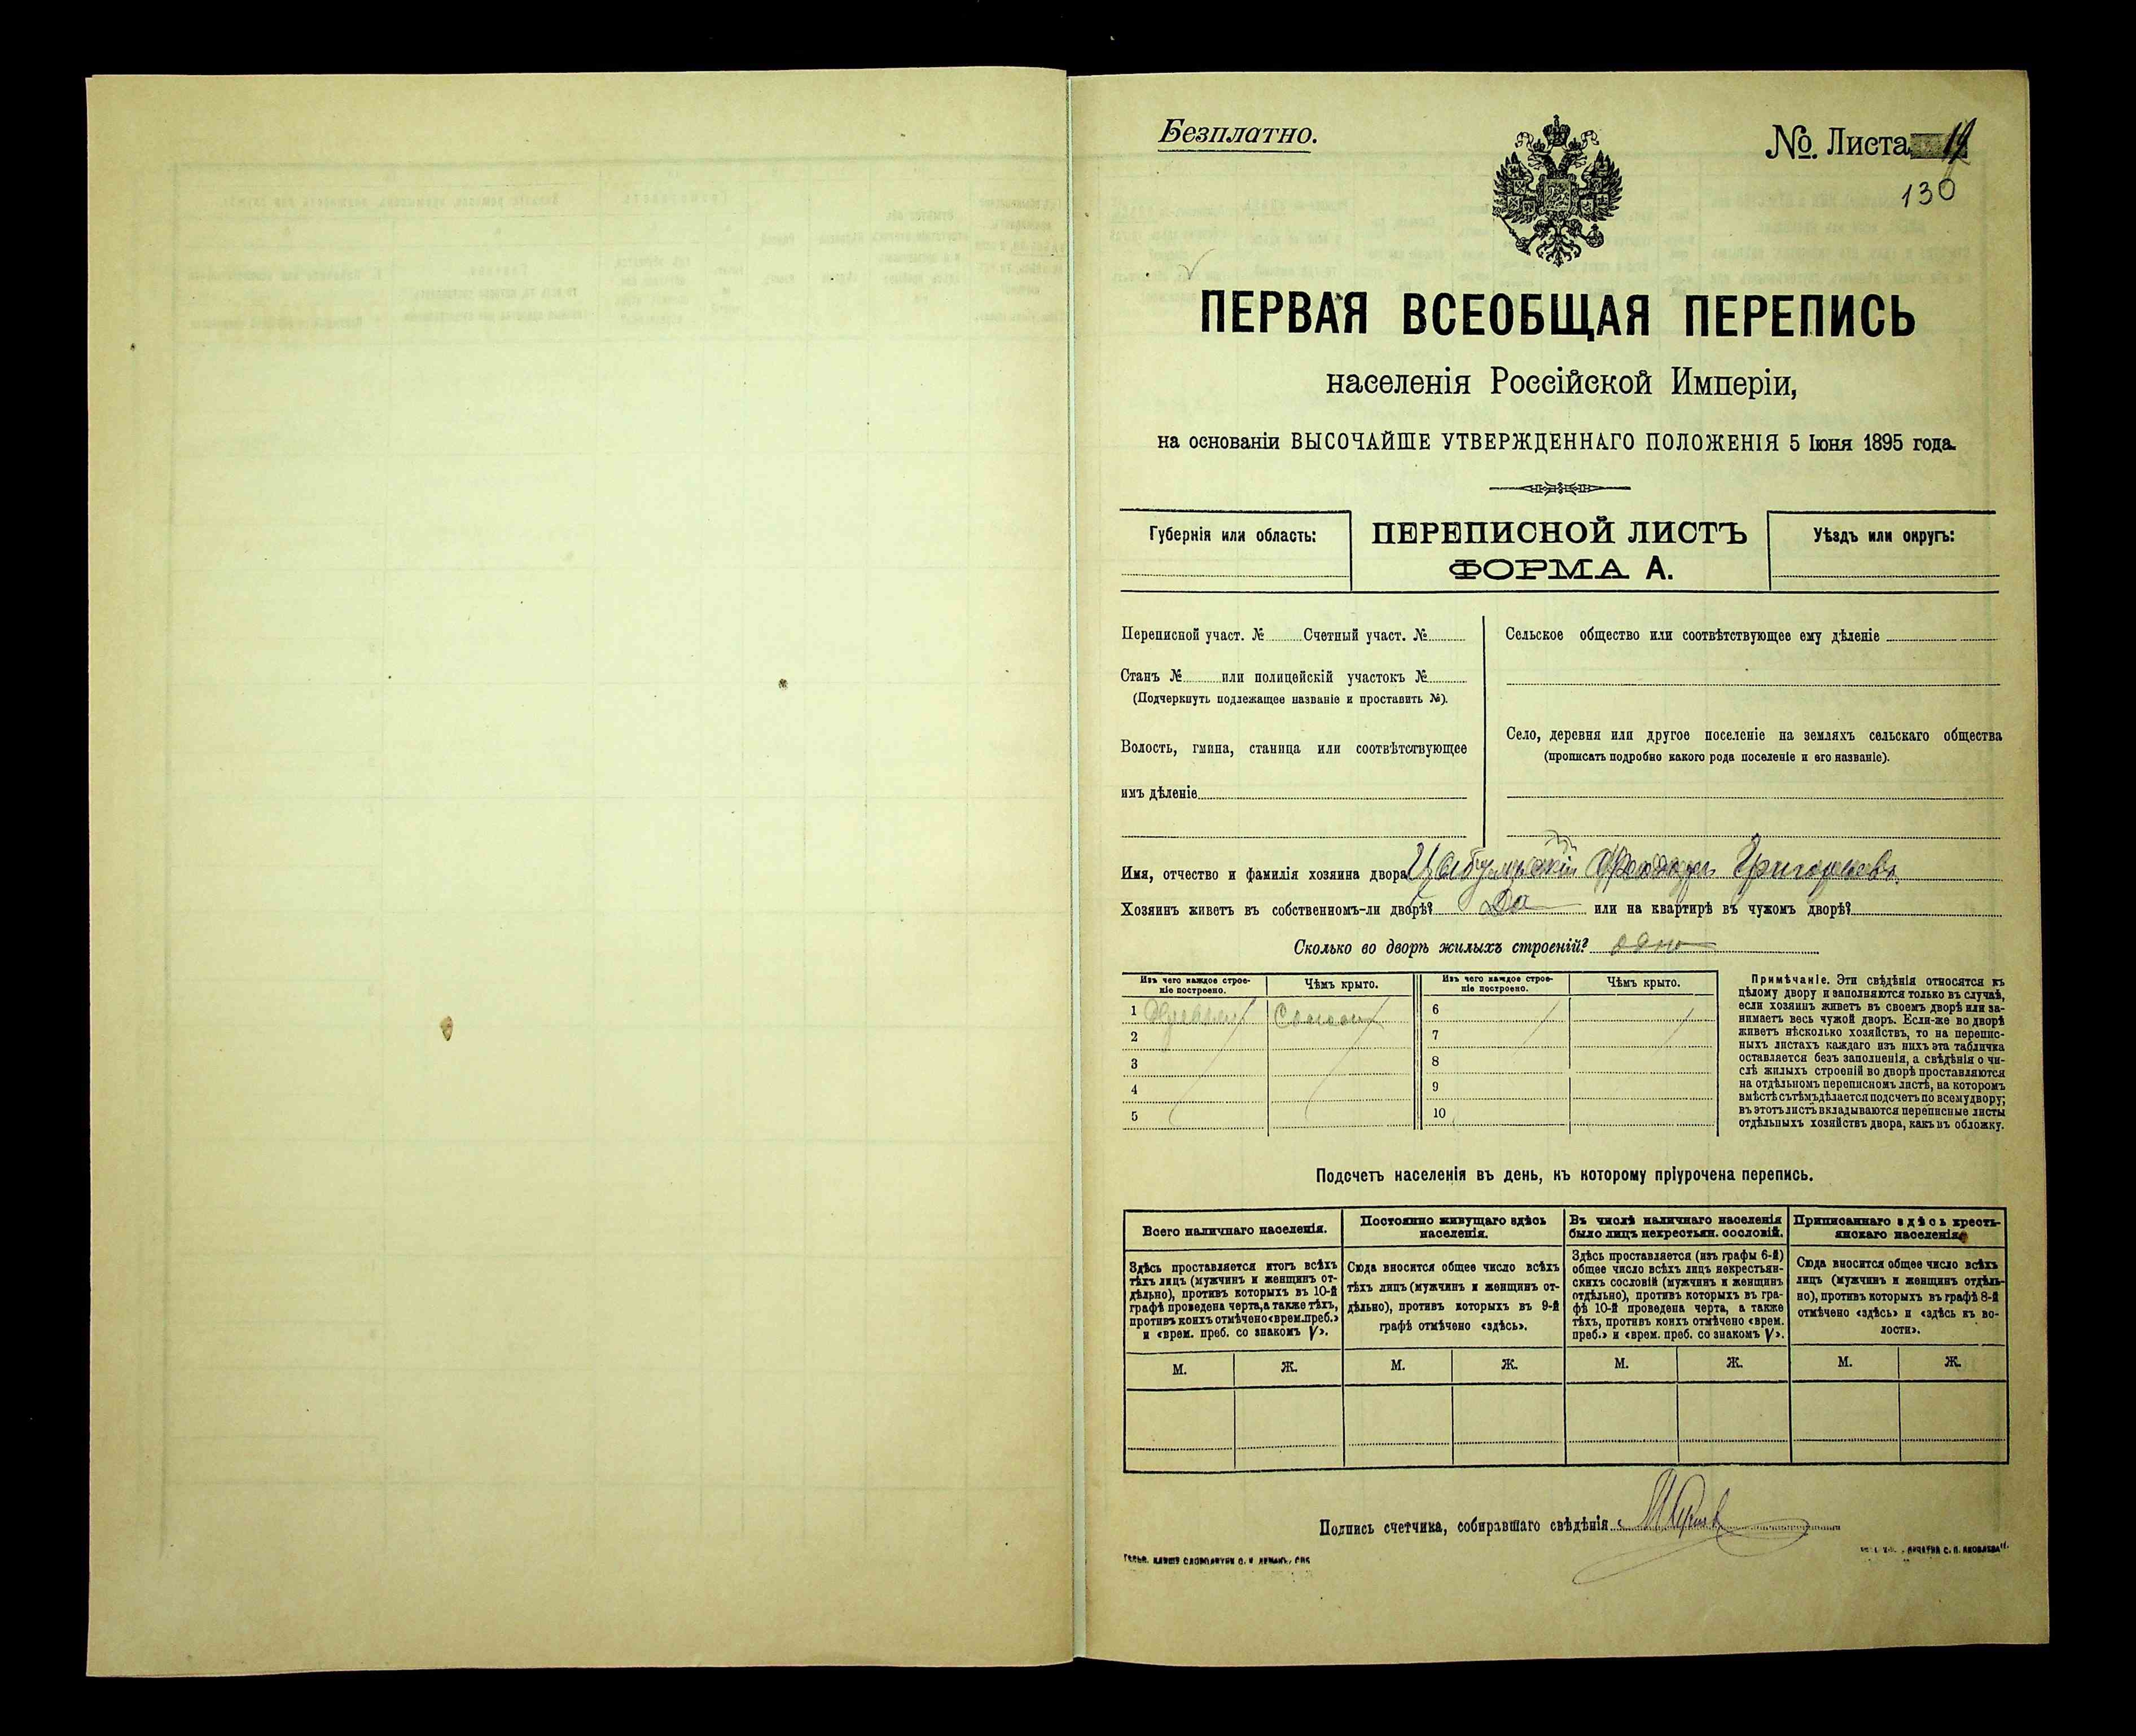 Безплатно.
№. Листа 19
130
ПЕРВАЯ ВСЕОБЩАЯ ПЕРЕПИСЬ
населенія Россійской Имперіи,
на основаніи ВЫСОЧАЙШЕ УТВЕРЖДЕННАГО ПОЛОЖЕНІЯ 5 Іюня 1895 года.
Губернія или область:
ПЕРЕПИСНОЙ ЛИСТЪ
ФОРМА А.
Уѣздъ или округъ:
Переписной участ. № Счетный участ. №
Станъ № или полицейскій участокъ №
(Подчеркнуть подлежащее названіе и проставить №).
Волость, гмина, станица или соотвѣтствующее
имъ дѣленіе
Сельское общество или соотвѣтствующее ему дѣленіе
Село, деревня или другое поселеніе на земляхъ сельскаго общества
(прописать подробно какого рода поселеніе и его названіе).
Имя, отчество и фамилія хозяина двора Григорьевъ
Хозяинъ живетъ въ собственномъ-ли дворѣ? Да или на квартирѣ въ чужомъ дворѣ?
Сколько во дворѣ жилыхъ строеній? одно
Изъ чего каждое строе-
ніе построено.
Чѣмъ крыто.
Изъ чего каждое строе-
ніе построено.
Чѣмъ крыто.
1 Соломы 6
2 7
3 8
4 9
5 10
Примѣчаніе. Эти свѣдѣнія относятся къ
цѣлому двору и заполняются только въ случаѣ,
если хозяинъ живетъ въ своемъ дворѣ или за-
нимаетъ весь чужой дворъ. Если-же во дворѣ
живетъ нѣсколько хозяйствъ, то на перепис-
ныхъ листахъ каждаго изъ нихъ эта табличка
оставляется безъ заполненія, а свѣдѣнія о чи-
слѣ жилыхъ строеній во дворѣ проставляются
на отдѣльномъ переписномъ листѣ, на которомъ
вмѣстѣ съ тѣмъ дѣлается подсчетъ по всему двору;
въ этотъ листъ вкладываются переписные листы
отдѣльныхъ хозяйствъ двора, какъ въ обложку.
Подсчетъ населенія въ день, къ которому пріурочена перепись.
Всего наличнаго населенія.
Здѣсь проставляется итогъ всѣхъ
тѣхъ лицъ (мужчинъ и женщинъ от-
дѣльно), противъ которыхъ въ 10-й
графѣ проведена черта, а также тѣхъ,
противъ коихъ отмѣчено «врем. преб.»
и «врем. преб. со знакомъ V».
Постоянно живущаго здѣсь
населенія.
Сюда вносится общее число всѣхъ
тѣхъ лицъ (мужчинъ и женщинъ от-
дѣльно), противъ которыхъ въ 9-й
графѣ отмѣчено «здѣсь».
Въ числѣ наличнаго населенія
было лицъ некрестьян. сословій.
Здѣсь проставляется (изъ графы 6-й)
общее число всѣхъ лицъ некрестьян-
скихъ сословій (мужчинъ и женщинъ
отдѣльно), противъ которыхъ въ гра-
фѣ 10-й проведена черта, а также
тѣхъ, противъ коихъ отмѣчено «врем.
преб.» и «врем. преб. со знакомъ V».
Приписаннаго здѣсь кресть-
янскаго населенія.
Сюда вносится общее число всѣхъ
лицъ (мужчинъ и женщинъ отдѣль-
но), противъ которыхъ въ графѣ 8-й
отмѣчено «здѣсь» и «здѣсь къ во-
лости».
М. Ж. М. Ж. М. Ж. М. Ж.
Подпись счетчика, собиравшаго свѣдѣнія